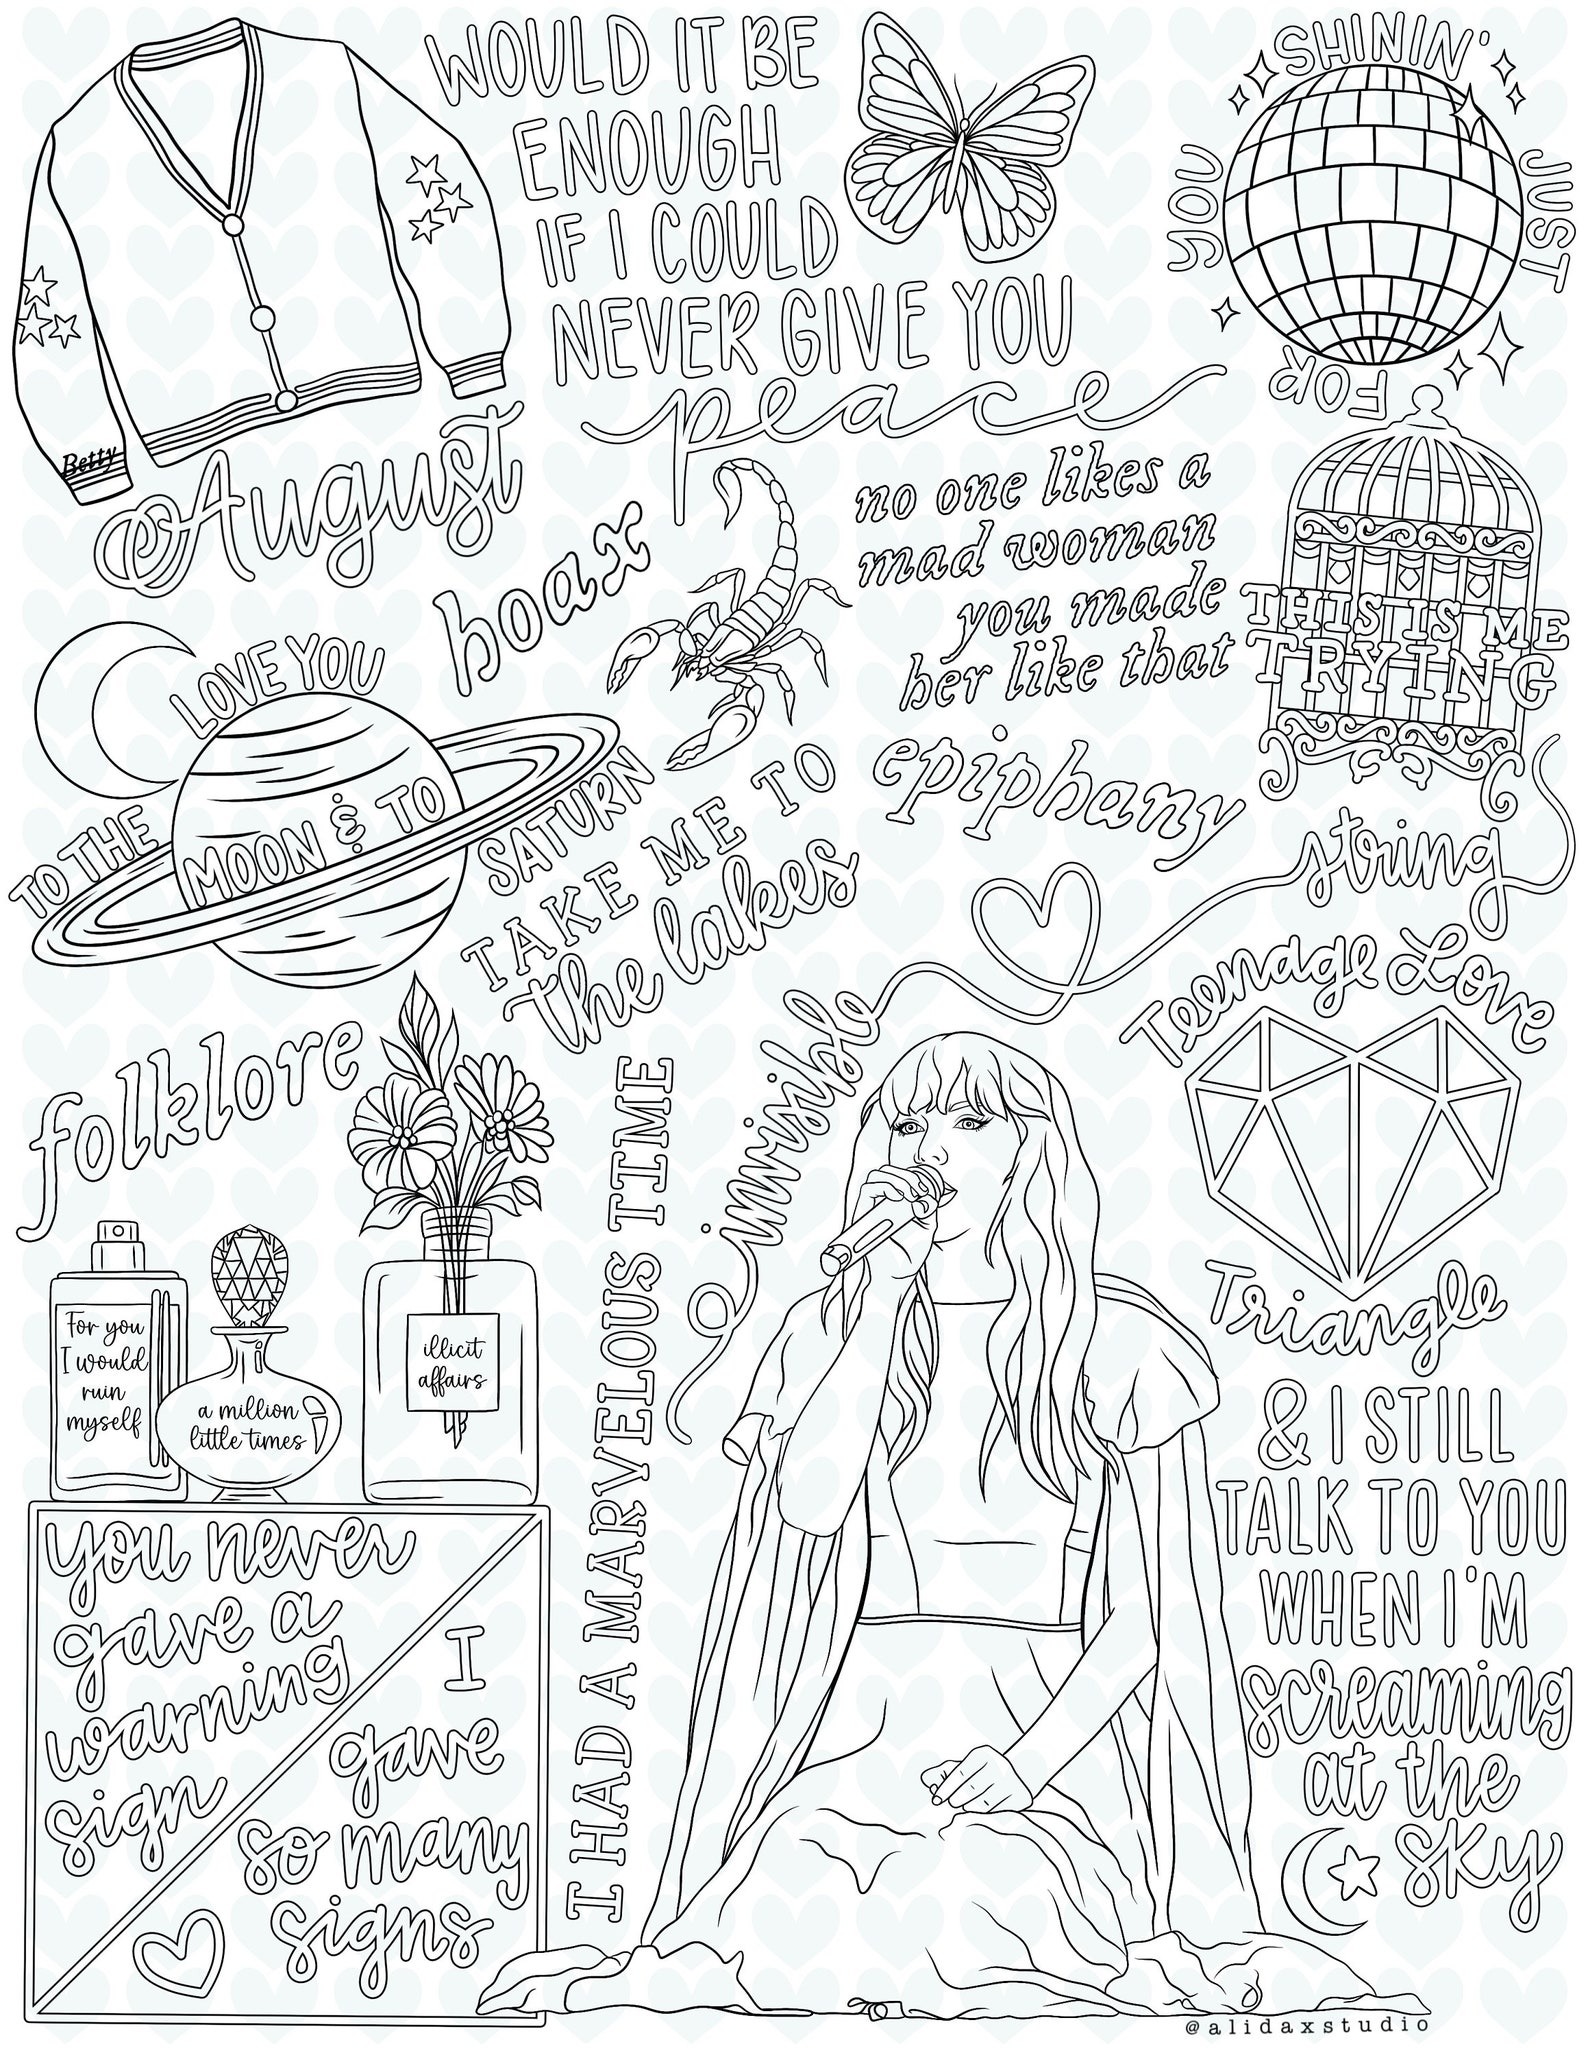 WOULD IT BE
ENOUGH
IF I COULD
NEVER GIVE YOU
peace
SHININ'
JUST
FOR
YOU
Betty
August
hoax
no one likes a
mad woman
you made
her like that
THIS IS ME
TRYING
LOVE YOU
TO THE
MOON & TO
SATURN
TAKE ME TO
the lakes
epiphany
invisible
string
folklore
Teenage Love
Triangle
For you
I would
ruin
myself
a million
little times
illicit
affairs
I HAD A MARVELOUS TIME
you never
gave a
warning
sign
I
gave
so many
signs
& I STILL
TALK TO YOU
WHEN I'M
screaming
at the
sky
@alidaxstudio